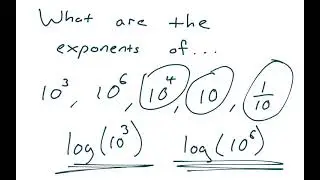 What are the
exponents of...
10³, 10⁶, 10⁴, 10, 1/10
log(10³) log(10⁶)